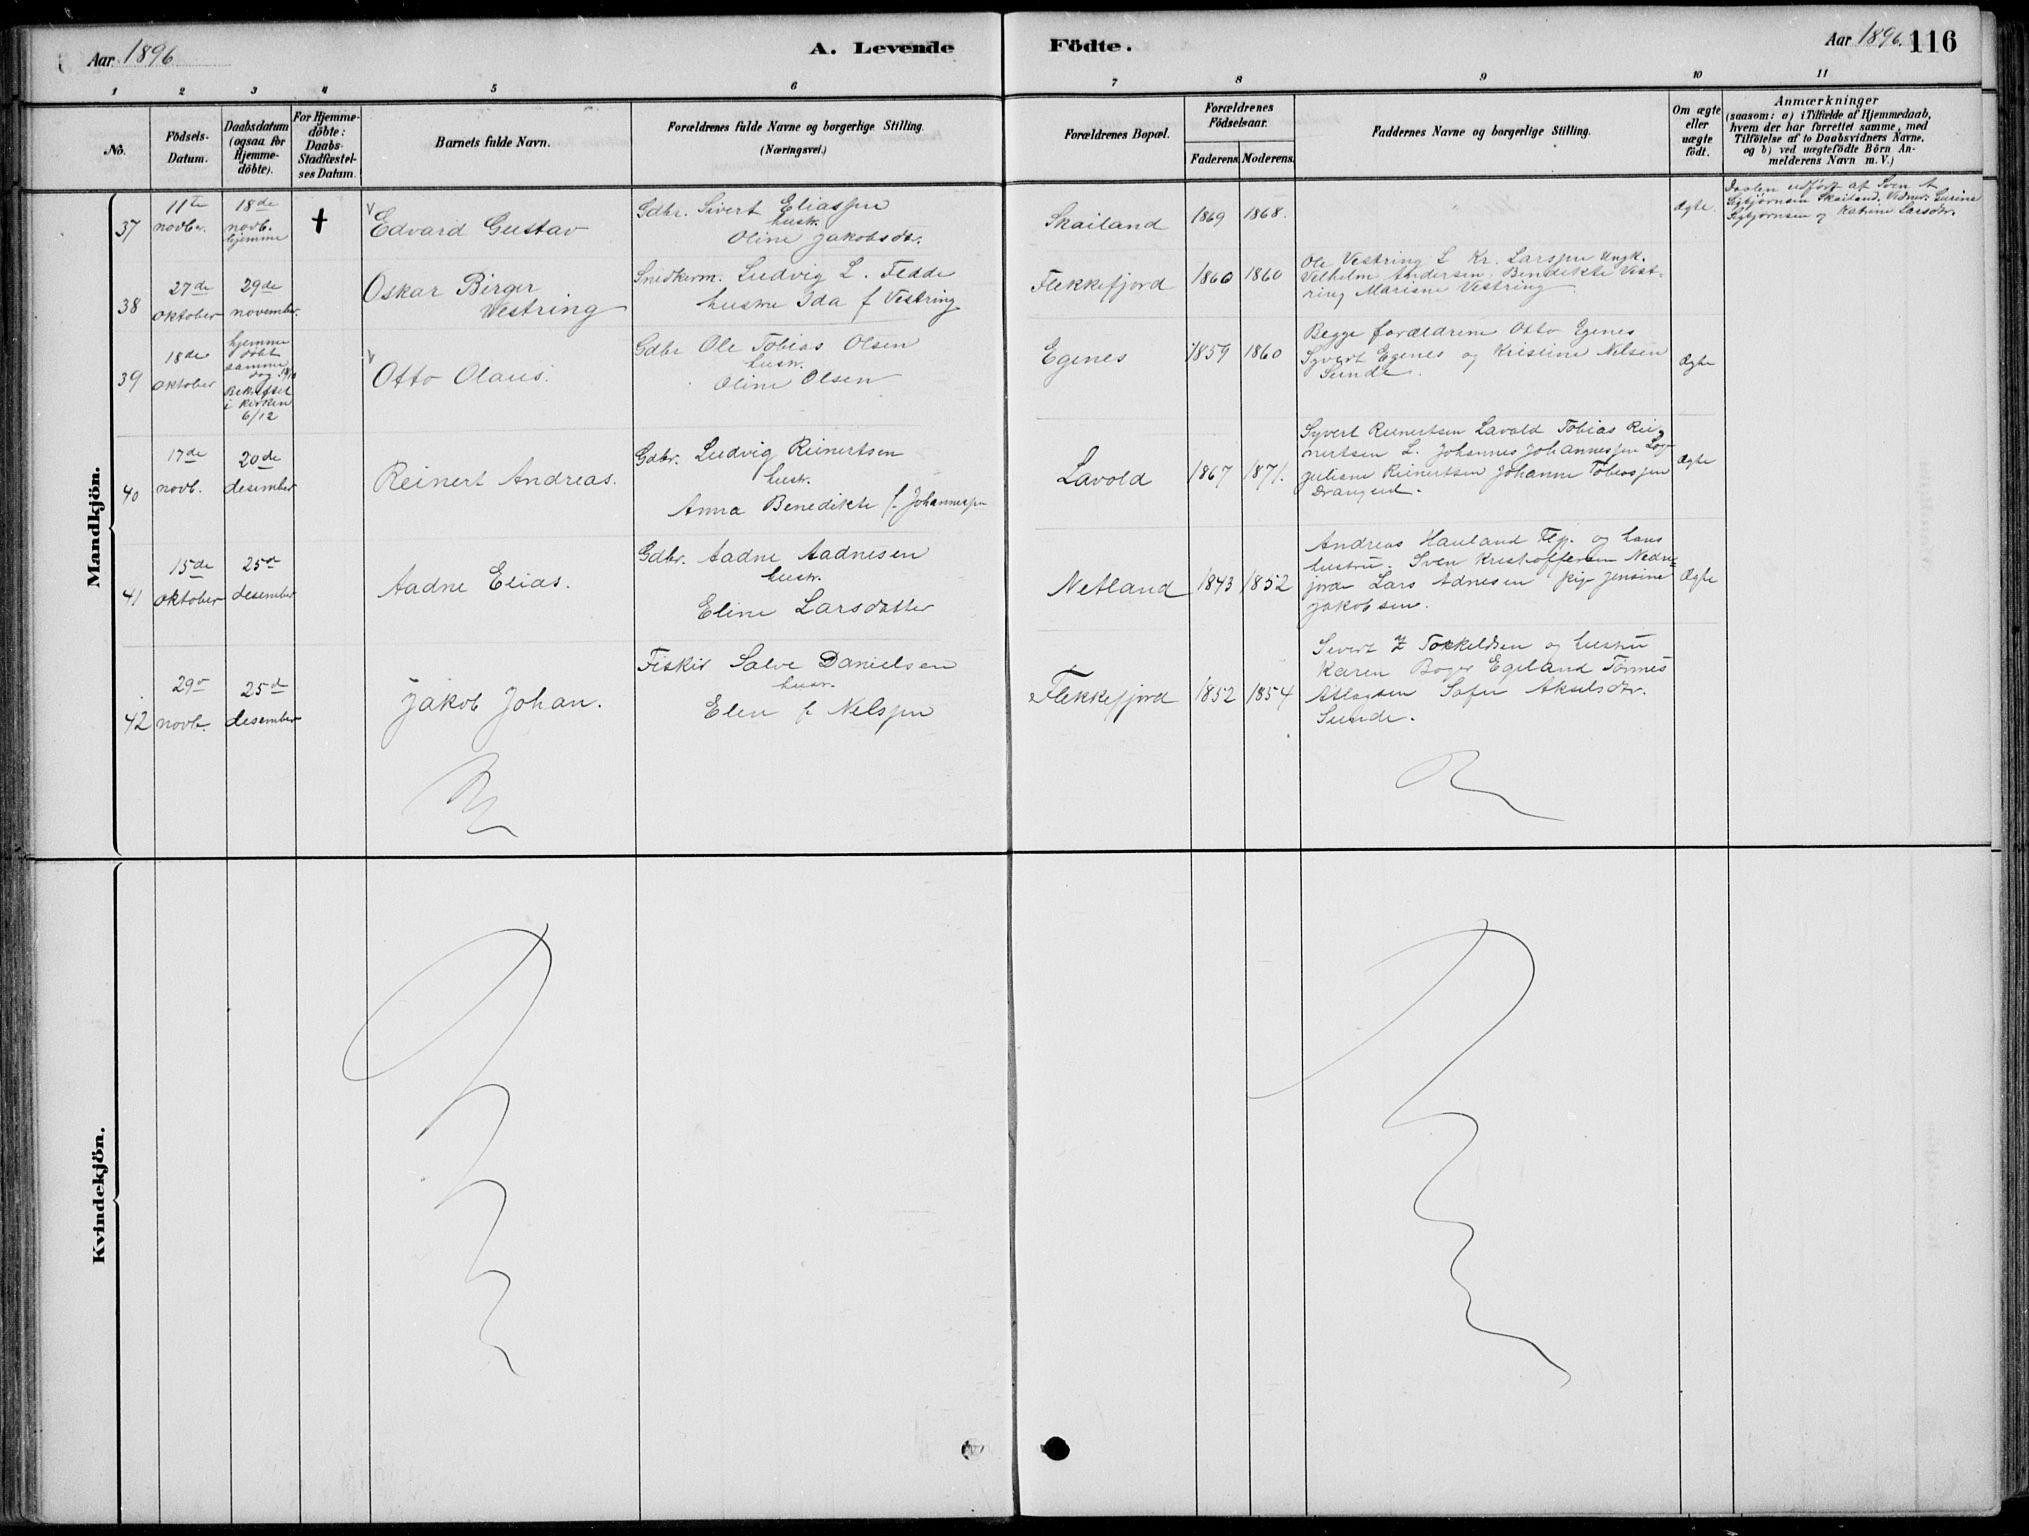 Aar 1896
A. Levende Födte.
Aar 1896. 116
1 2 3 4 5 6 7 8 9 10 11
No.
Födsels-Datum.
Daabsdatum (ogsaa for Hjemmedöbte).
For Hjemmedöbte: Daabs-Stadfæstelses Datum.
Barnets fulde Navn.
Forældrenes fulde Navne og borgerlige Stilling.
(Næringsvei.)
Forældrenes Bopæl.
Forældrenes Födselsaar.
Faderens. Moderens.
Faddernes Navne og borgerlige Stilling.
Om ægte eller uægte födt.
Anmærkninger
(saasom: a) i Tilfælde af Hjemmedaab,
hvem der har forrettet samme, med
Tilföielse af to Daabsvidners Navne,
og b) ved uægtefödte Börn An-
melderens Navn m. V.)
Mandkjön.
37
11te
novbr.
18de
novb.
hjemme
✝
Edvard Gustav
Gdbr. Sivert Eliassen
hustr.
Oline Jakobsdtr.
Skailand
1869 1868.
Ægte.
Daaben udført af Sven A
Sigbjørnsen Skailand. Vidner: Serine
Sigbjørnsen og Katrine Larsdtr.
38
27de
oktober
29de
november.
Oskar Birger
Vestring
Snedkerm. Ludvig L. Fedde
hustru Ida f Vestring
Flekkefjord
1860 1860
Ole Vestring L Kr. Larssen Ungk.
Vilhelm Andersen, Bendikte Vest-
ring Marisne Vestring
39
18de
oktober
hjemme
døbt
samme
dag 18/10
Bekræftet
i kirken
6/12
Otto Olaus.
Gdbr Ole Tobias Olsen
hustr.
Oline Olsen
Egenes
1859 1860
Begge forældrene Otto Egenes
Syvert Egenes og Kristine Nelsen
Sunde.
Ægte
40
17de
novb.
20de
desember
Reinert Andreas.
Gdbr. Ludvig Reinertsen
hustr.
Anna Benedikte f. Johannessen
Lavold
1867 1871.
Syvert Reinertsen Lavold Tobias Rei-
nertsen L. Johannes Johannessen Log
Juliane Reinertsen Johanne Tobiassen
Drangeid.
Ægte
41
15de
oktober
25de
desember
Aadne Elias.
Gdbr. Aadne Aadnesen
hustr.
Eline Larsdatter
Netland
1843 1852
Andreas Hauland Flgj. og hans
hustru. Sven Kristoffersen Nedre-
jorde Lars Adnesen pige Jensine
Jakobsen.
Ægte
42
29de
novb.
25de
desember
Jakob Johan.
Fisker Salve Danielsen
hustr.
Elen f Nelssen
Flekkefjord
1852 1854
Severt Z Torkeldsen og hustru
Karen Boger Egeland Tønnes
Atlagsen Sofie Akselsdtr.
Sunde.
Kvindekjön.